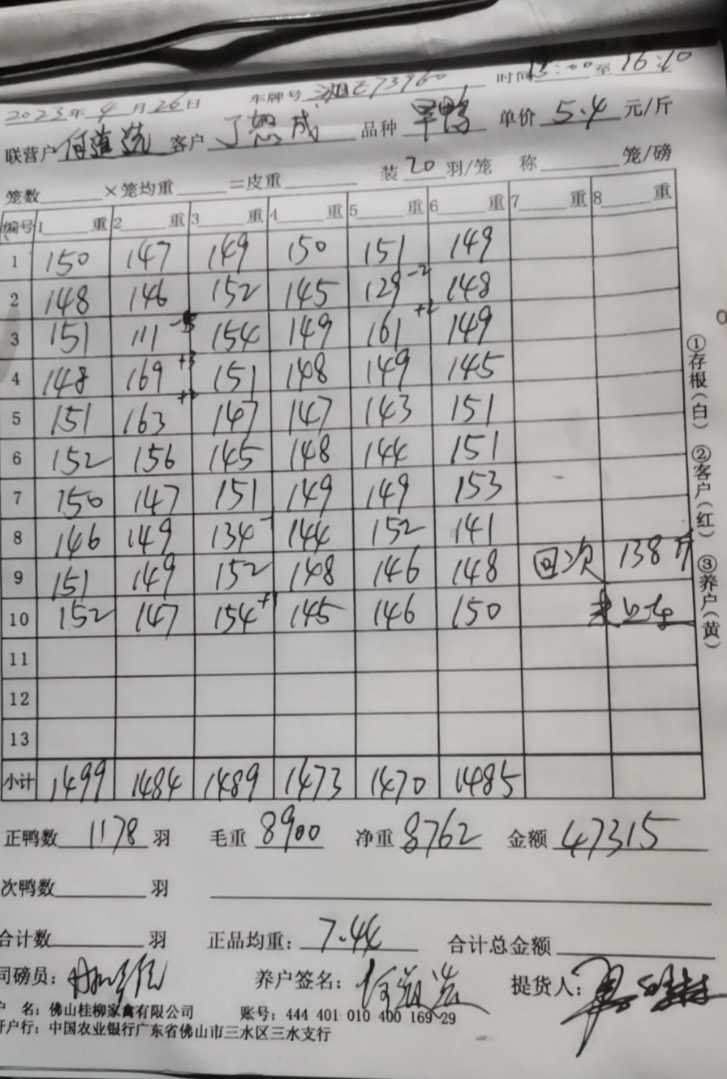 2023年4月26日 车牌号 湘E73960 时间15:00至16:10
联营户 客户 品种 旱鸭 单价 5.4 元/斤
笼数 ×笼均重 =皮重 装 20 羽/笼 称 笼/磅
编号 1 重 2 重 3 重 4 重 5 重 6 重 7 重 8 重
1 150 147 149 150 151 149
2 148 146 152 145 129 -2 148
3 151 111 154 149 161 149
4 148 169 +3 151 148 149 145
5 151 163 147 147 143 151
6 152 156 145 148 144 151
7 150 147 151 149 149 153
8 146 149 134 - 144 152 141
9 151 149 152 148 146 148 回次 138斤
10 152 147 154 + 145 146 150 未上车
11
12
13
小计 1499 1484 1489 1473 1470 1485
①存根(白) ②客户(红) ③养户(黄)
正鸭数 1178 羽 毛重 8900 净重 8762 金额 47315
次鸭数 羽
合计数 羽 正品均重: 7.44 合计总金额
司磅员: 养户签名: 提货人:
户 名: 佛山桂柳家禽有限公司 账号: 444 401 010 400 169 29
开户行: 中国农业银行广东省佛山市三水区三水支行